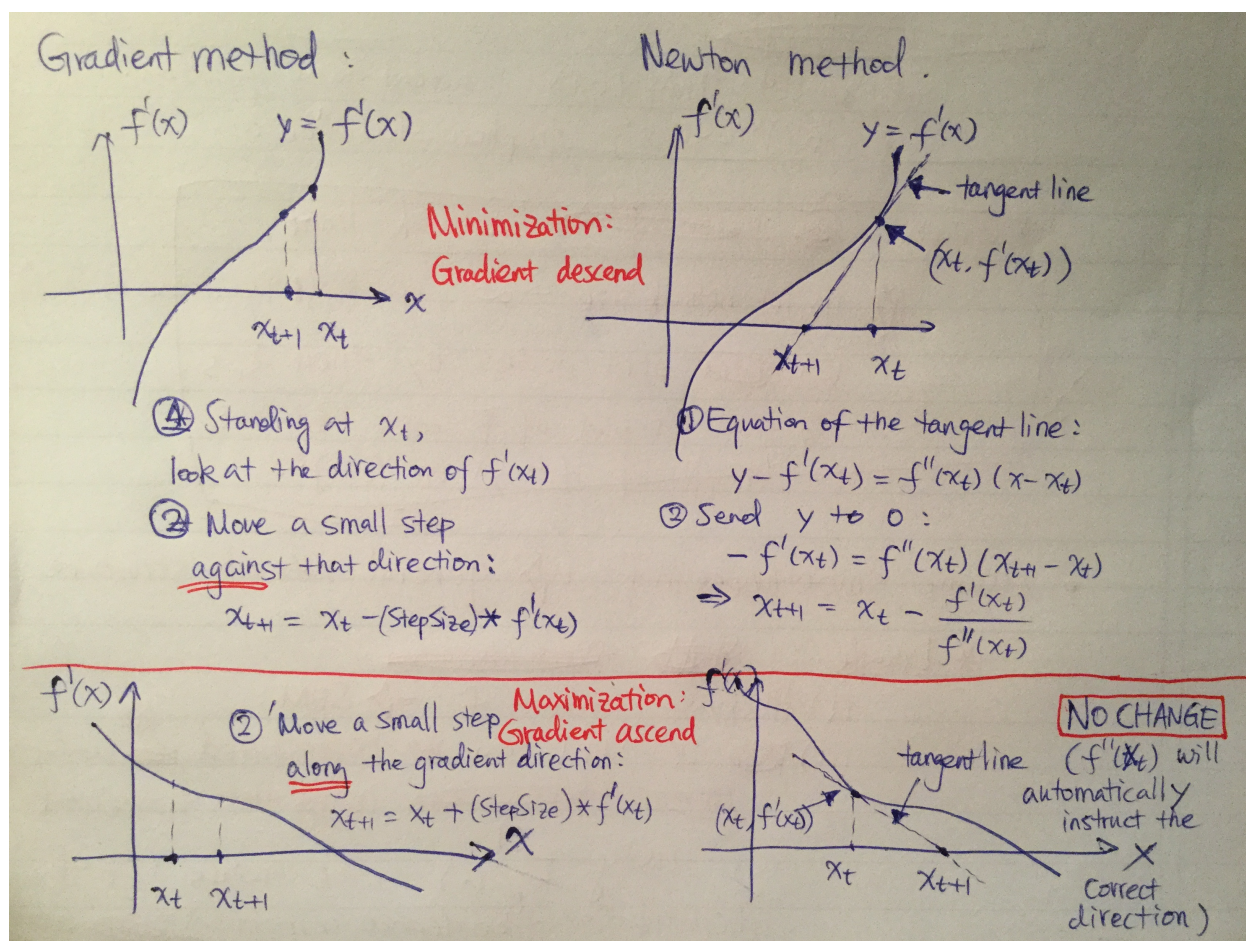 Gradient method :
f'(x)
y = f'(x)
x
x_{t+1}
x_t
Minimization:
Gradient descend
① Standing at x_t,
look at the direction of f'(x_t)
② Move a small step
against that direction:
x_{t+1} = x_t - (StepSize) * f'(x_t)
Newton method.
f'(x)
y = f'(x)
tangent line
(x_t, f'(x_t))
x_{t+1}
x_t
① Equation of the tangent line:
y - f'(x_t) = f''(x_t) (x - x_t)
② Send y to 0:
- f'(x_t) = f''(x_t) (x_{t+1} - x_t)
⇒ x_{t+1} = x_t - f'(x_t) / f''(x_t)
f'(x)
Maximization:
Gradient ascend
②' Move a small step
along the gradient direction:
x_{t+1} = x_t + (StepSize) * f'(x_t)
X
x_t
x_{t+1}
f'(x)
tangent line
(x_t, f'(x_t))
x_t
x_{t+1}
X
NO CHANGE
(f''(x_t) will
automatically
instruct the
correct
direction)